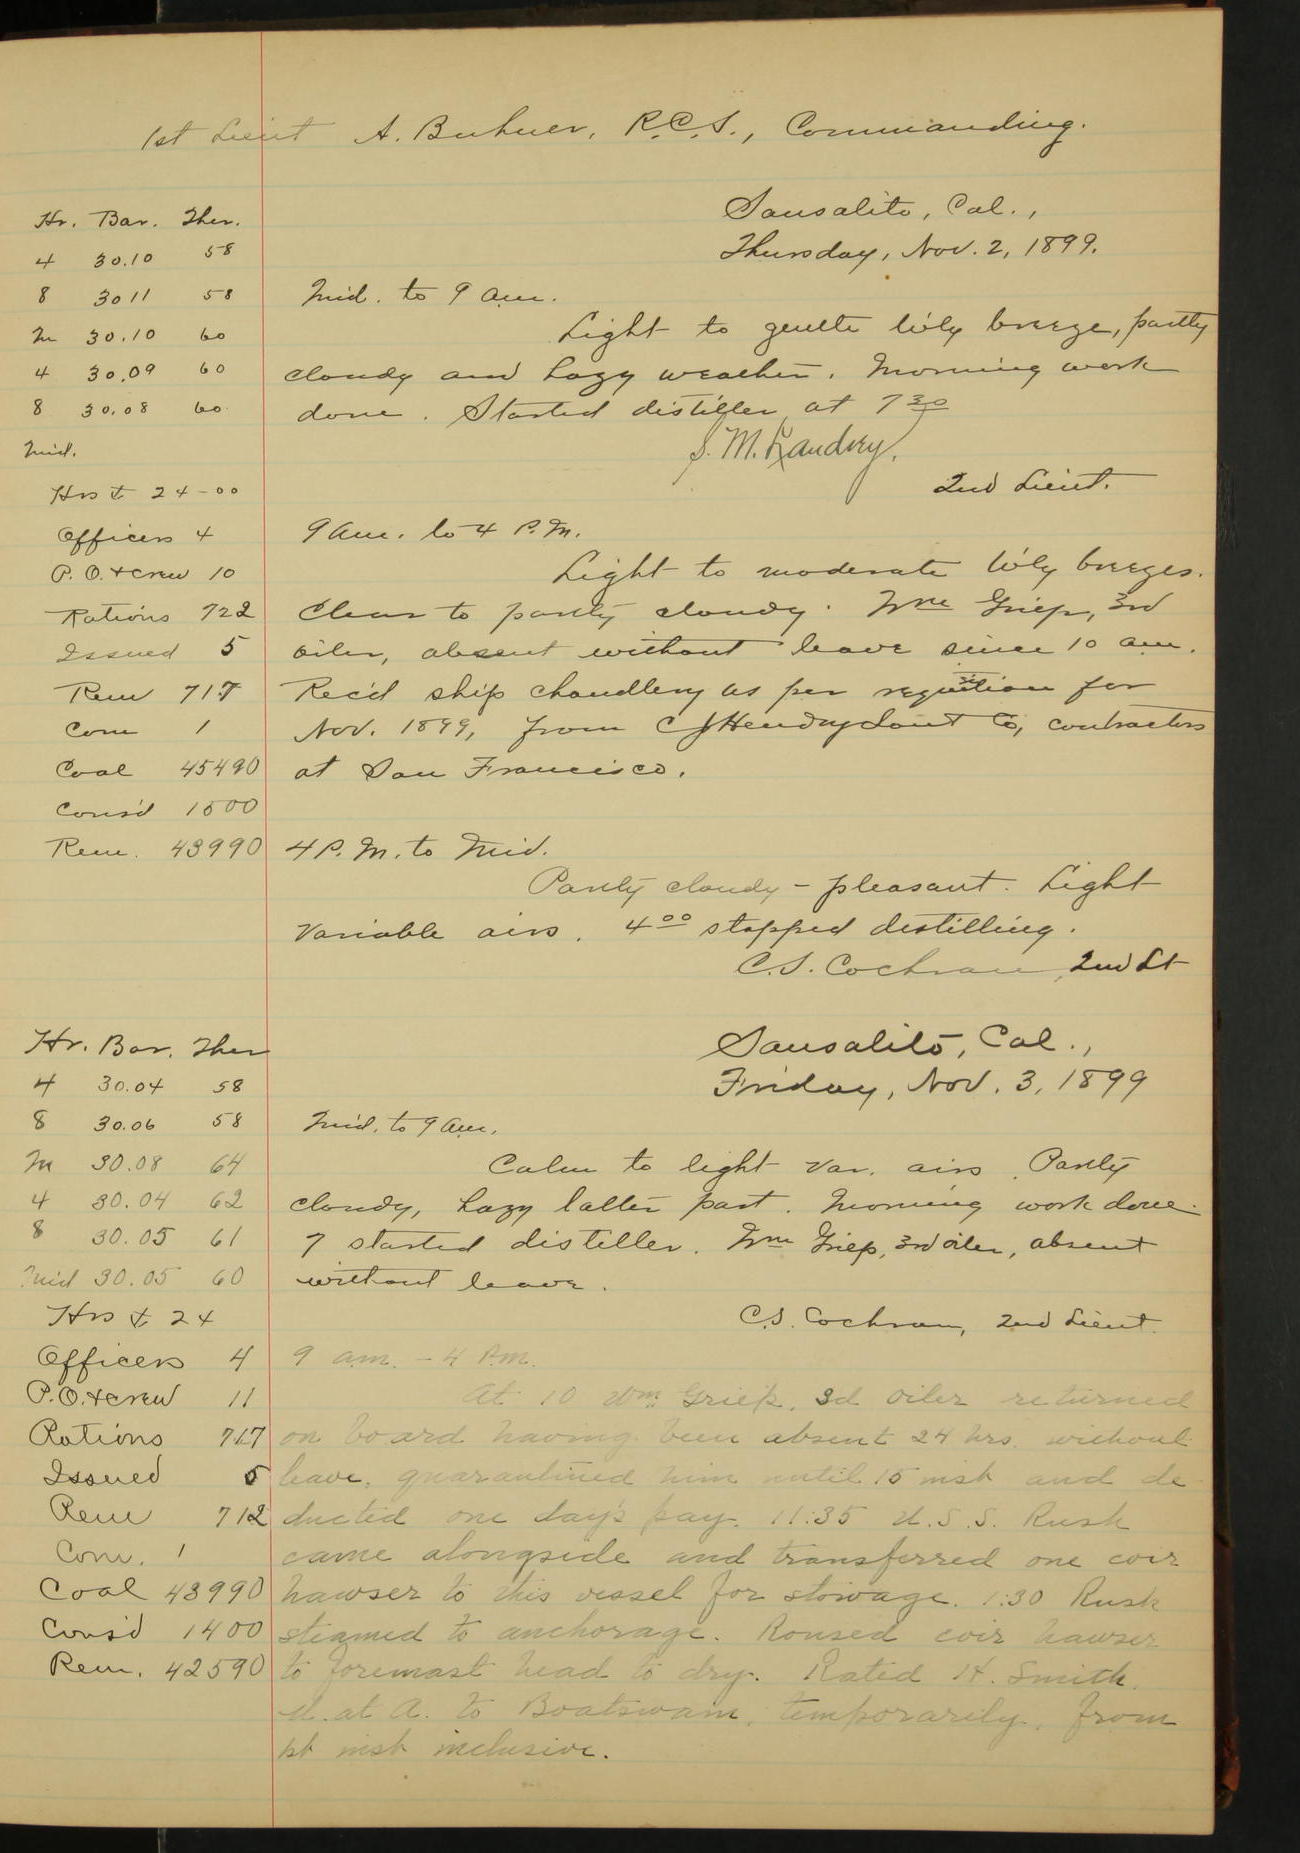 1st Lieut A. Buhner, R.C.S., Commanding.
Sausalito, Cal.,
Thursday, Nov. 2, 1899.
Hr. Bar. Ther.
4 30.10 58
8 30 11 58
M 30.10 60
4 30.09 60
8 30.08 60
Mid.
Hrs & 24-00
Officers 4
P. O. & crew 10
Rations 722
Issued 5
Rem 717
Com 1
Coal 45490
Cons'd 1500
Rem. 43990
Mid. to 9 am.
Light to gentle W'ly breeze, partly
cloudy and hazy weather. Morning work
done. Started distiller at 7 30
S. M. Landrey.
2nd Lieut.
9 am. to 4 P.M.
Light to moderate W'ly breezes.
Clear to partly cloudy. Wm Griep, 3rd
oiler, absent without leave since 10 am.
Rec'd ship chandlery as per requisition for
Nov. 1899, from C J Hendry Co, contractors
at San Francisco.
4 P.M. to Mid.
Partly cloudy - pleasant. Light
Variable airs. 4 00 stopped distilling.
C.S. Cochran 2nd Lt
Sausalito, Cal.,
Friday, Nov. 3, 1899
Hr. Bar. Ther
4 30.04 58
8 30.06 58
M 30.08 64
4 30.04 62
8 30.05 61
Mid 30.05 60
Hrs & 24
Officers 4
P.O. & crew 11
Rations 717
Issued 5
Rem 712
Com. 1
Coal 43990
Cons'd 1400
Rem. 42590
Mid. to 9 am.
Calm to light var. airs. Partly
cloudy, hazy latter part. Morning work done.
7 started distiller. Wm Griep, 3rd oiler, absent
without leave.
C.S. Cochran, 2nd Lieut.
9 a.m. - 4 P.M.
At 10 Wm. Griep, 3d oiler returned
on board having been absent 24 hrs. without
leave, quarantined him until 15 inst and de
ducted one day's pay. 11:35 U.S.S. Rush
came alongside and transferred one coir
hawser to this vessel for stowage. 1:30 Rush
steamed to anchorage. Roused coir hawser
to foremast head to dry. Rated H. Smith.
M. at A. to Boatswain, temporarily, from
1st inst inclusive.